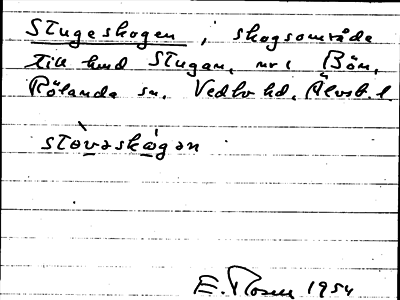 Stugeskogen, skogsområde
till hmd Stugan, nr 1 Bön,
Rölanda sn. Vedbo hd, Älvsb. l.
stòvəskágən
E. Rosen 1954